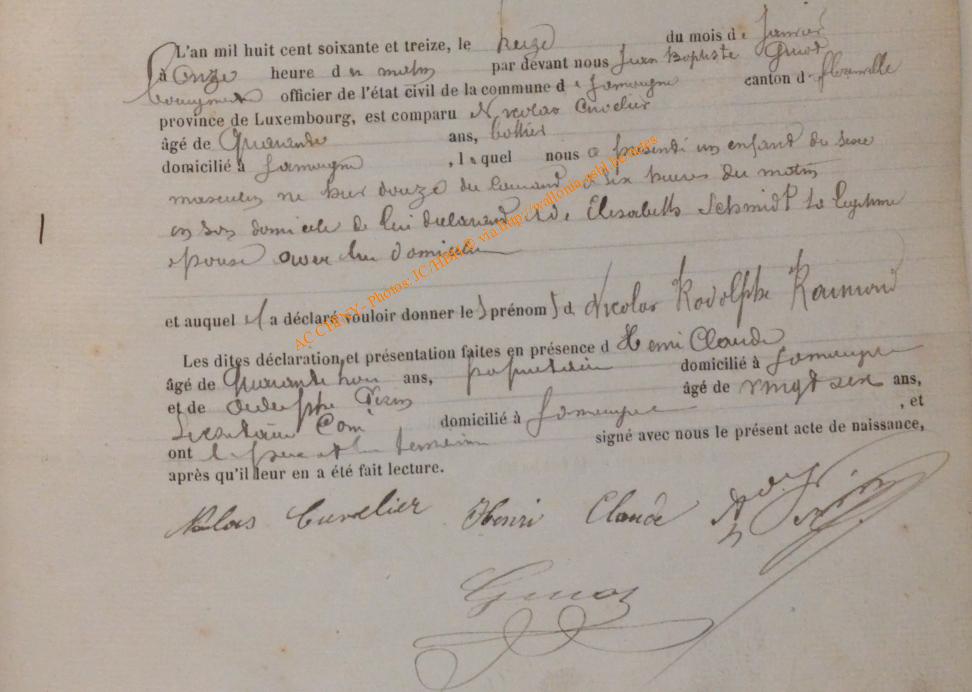 L'an mil huit cent soixante et treize, le treize du mois de Janvier
à onze heure du matin par devant nous Jean Baptiste
officier de l'état civil de la commune de Jamoigne canton de florenville
province de Luxembourg, est comparu Nicolas Cuvelier
âgé de Quarante ans, bottier
domicilié à Jamoigne, lequel nous a présenté un enfant du sexe
masculin né hier douze du courant à six heures du matin
en son domicile de lui déclarant et de Elisabeth Schmidt sa légitime
épouse avec lui domiciliée
et auquel il a déclaré vouloir donner les prénoms de Nicolas Rodolphe Raimond
Les dites déclaration et présentation faites en présence d Henri Claude
âgé de Quarante ans, propriétaire domicilié à Jamoigne
et de âgé de vingt six ans,
Secrétaire Com domicilié à Jamoigne, et
ont le père et les témoins signé avec nous le présent acte de naissance,
après qu'il leur en a été fait lecture.
Cuvelier Henri Claude
AC CHINY - Photos: JC/HBH © via http://wallonia-gebl.be/indes